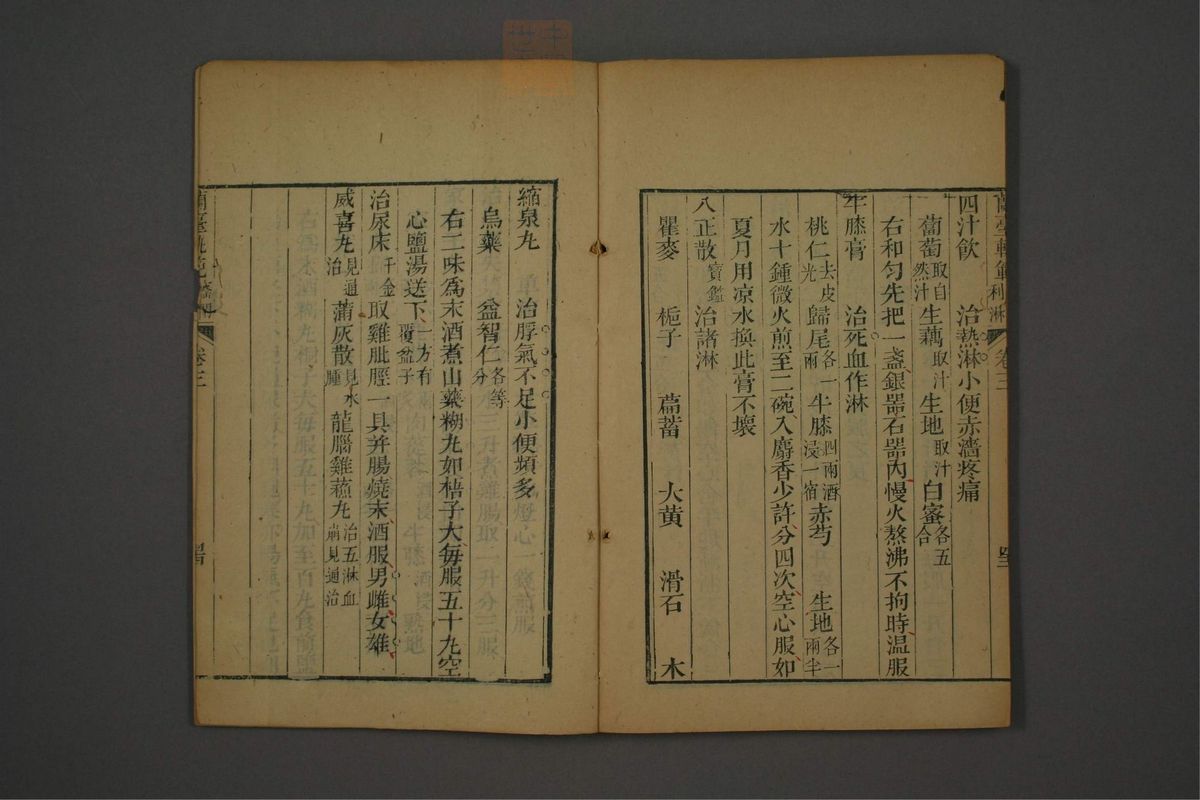 蘭臺軌範利淋 卷三
四汁飲 治熱淋小便赤濇疼痛
葡萄取自然汁生藕取汁生地取汁白蜜各五合
右和勻先把一盞銀器石器內慢火熬沸不拘時温服
牛膝膏 治死血作淋
桃仁去皮光歸尾各一兩牛膝四兩酒浸一宿赤芍 生地各一兩半
水十鍾微火煎至二碗入麝香少許分四次空心服如
夏月用凉水換此膏不壞
八正散寶鑑治諸淋
瞿麥 梔子 萹蓄 大黄 滑石 木
縮泉丸 治脬氣不足小便頻多
烏藥 益智仁各等分
右二味爲末酒煮山藥糊丸如梧子大每服五十丸空
心鹽湯送下一方有覆盆子
治尿床千金取雞肶脛一具并腸燒末酒服男雌女雄
威喜丸見通治蒲灰散見水腫龍腦雞蘓丸治五淋血崩見通治
卷三